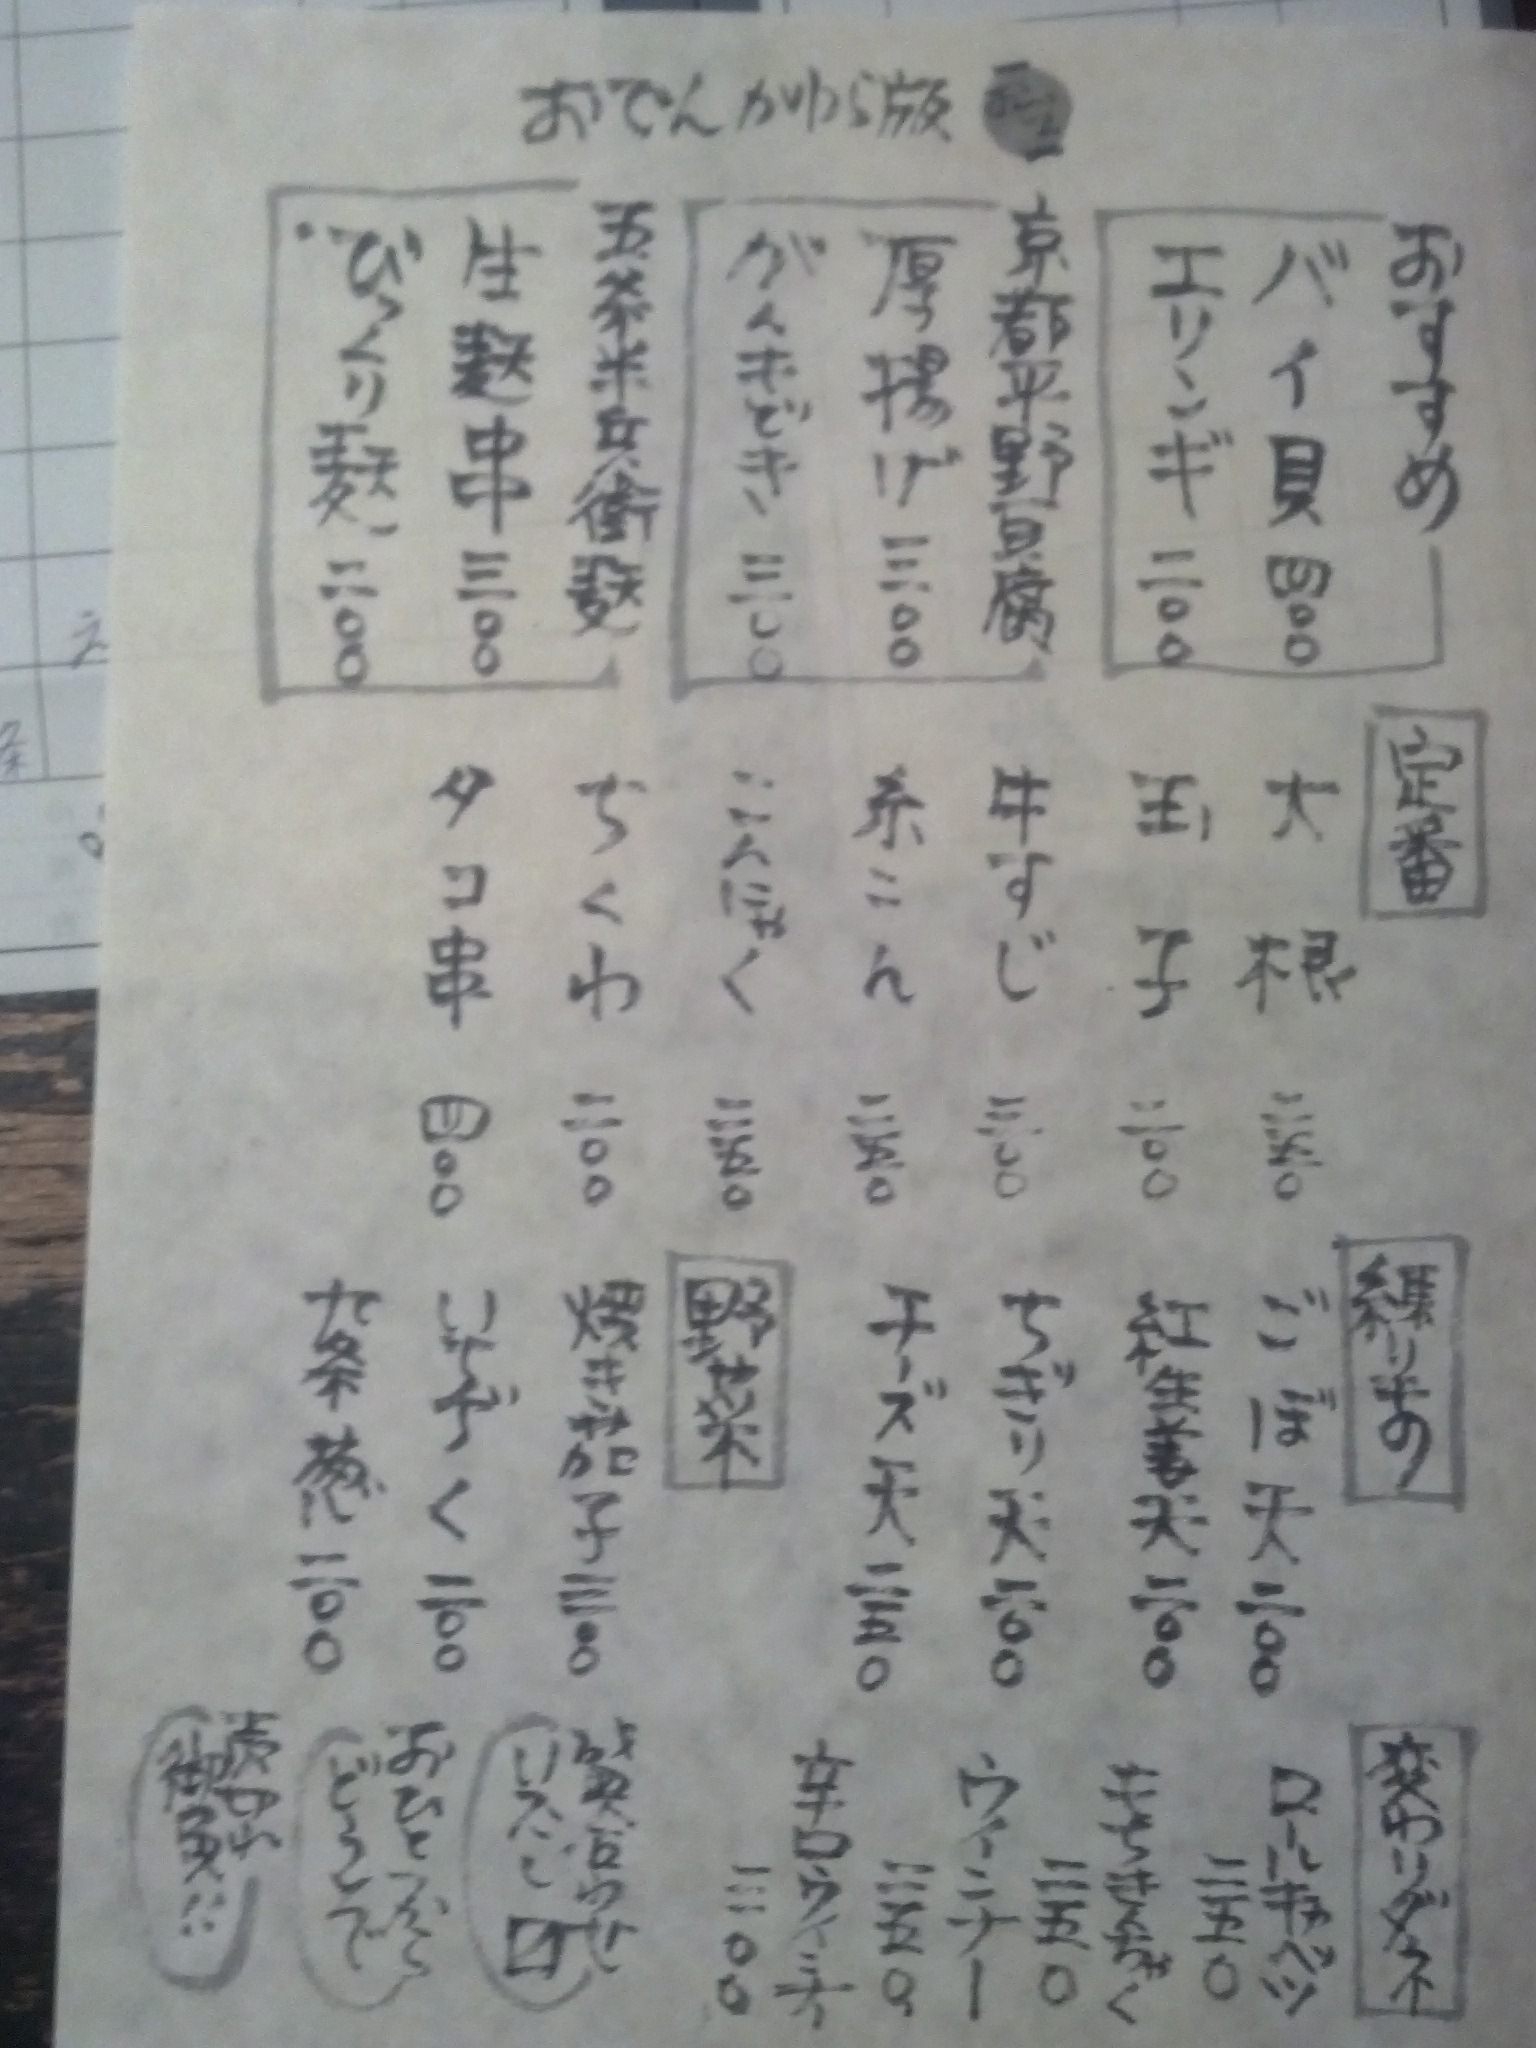 おでんかわら版
おすすめ
バイ貝 四〇〇
エリンギ 二〇〇
京都平野豆腐
厚揚げ 三〇〇
がんもどき 三〇〇
五条米兵衛麩
生麩串 三〇〇
びっくり麩 二〇〇
定番
大根 二五〇
玉子 二〇〇
牛すじ 三〇〇
糸こん 二五〇
こんにゃく 二五〇
ちくわ 二〇〇
タコ串 四〇〇
練りもの
ごぼ天 二〇〇
紅生姜天 二〇〇
ちぎり天 二〇〇
チーズ天 二五〇
野菜
焼き茄子 三〇〇
いちぢく 二〇〇
九条葱 二〇〇
変わりダネ
ロールキャベツ
二五〇
もちきんちゃく
二五〇
ウインナー
二五〇
辛口ウインナー
三〇〇
盛合わせ
いたし〼
おひとつから
どうぞ
売切れ
御免!!